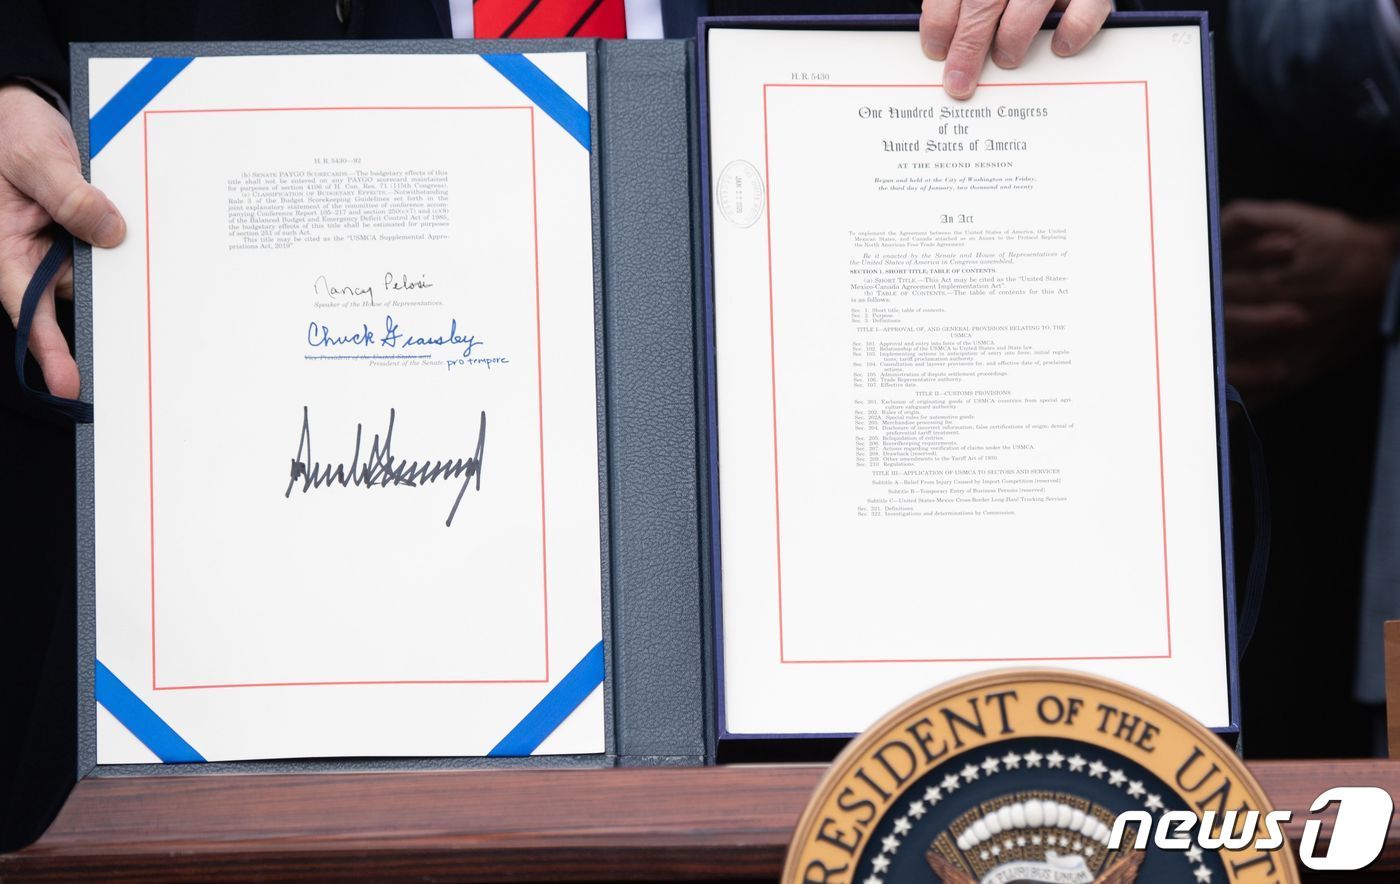 H. R. 5430—92
(b) SENATE PAYGO SCORECARDS.—The budgetary effects of this
title shall not be entered on any PAYGO scorecard maintained
for purposes of section 4106 of H. Con. Res. 71 (115th Congress).
(c) CLASSIFICATION OF BUDGETARY EFFECTS.—Notwithstanding
Rule 3 of the Budget Scorekeeping Guidelines set forth in the
joint explanatory statement of the committee of conference accom-
panying Conference Report 105–217 and section 250(c)(7) and (c)(8)
of the Balanced Budget and Emergency Deficit Control Act of 1985,
the budgetary effects of this title shall be estimated for purposes
of section 251 of such Act.
This title may be cited as the "USMCA Supplemental Appro-
priations Act, 2019".
Nancy Pelosi
Speaker of the House of Representatives.
Chuck Grassley
Vice President of the United States and
President of the Senate. pro tempore
H. R. 5430
One Hundred Sixteenth Congress
of the
United States of America
AT THE SECOND SESSION
Begun and held at the City of Washington on Friday,
the third day of January, two thousand and twenty
An Act
To implement the Agreement between the United States of America, the United
Mexican States, and Canada attached as an Annex to the Protocol Replacing
the North American Free Trade Agreement.
Be it enacted by the Senate and House of Representatives of
the United States of America in Congress assembled,
SECTION 1. SHORT TITLE; TABLE OF CONTENTS.
(a) SHORT TITLE.—This Act may be cited as the "United States-
Mexico-Canada Agreement Implementation Act".
(b) TABLE OF CONTENTS.—The table of contents for this Act
is as follows:
Sec. 1. Short title; table of contents.
Sec. 2. Purpose.
Sec. 3. Definitions.
TITLE I—APPROVAL OF, AND GENERAL PROVISIONS RELATING TO, THE
USMCA
Sec. 101. Approval and entry into force of the USMCA.
Sec. 102. Relationship of the USMCA to United States and State law.
Sec. 103. Implementing actions in anticipation of entry into force; initial regula-
tions; tariff proclamation authority.
Sec. 104. Consultation and layover provisions for, and effective date of, proclaimed
actions.
Sec. 105. Administration of dispute settlement proceedings.
Sec. 106. Trade Representative authority.
Sec. 107. Effective date.
TITLE II—CUSTOMS PROVISIONS
Sec. 201. Exclusion of originating goods of USMCA countries from special agri-
culture safeguard authority.
Sec. 202. Rules of origin.
Sec. 202A. Special rules for automotive goods.
Sec. 203. Merchandise processing fee.
Sec. 204. Disclosure of incorrect information; false certifications of origin; denial of
preferential tariff treatment.
Sec. 205. Reliquidation of entries.
Sec. 206. Recordkeeping requirements.
Sec. 207. Actions regarding verification of claims under the USMCA.
Sec. 208. Drawback [reserved].
Sec. 209. Other amendments to the Tariff Act of 1930.
Sec. 210. Regulations.
TITLE III—APPLICATION OF USMCA TO SECTORS AND SERVICES
Subtitle A—Relief From Injury Caused by Import Competition [reserved]
Subtitle B—Temporary Entry of Business Persons [reserved]
Subtitle C—United States-Mexico Cross-Border Long-Haul Trucking Services
Sec. 321. Definitions.
Sec. 322. Investigations and determinations by Commission.
RESIDENT OF THE UNIT
PLURIBUS UNUM
news1